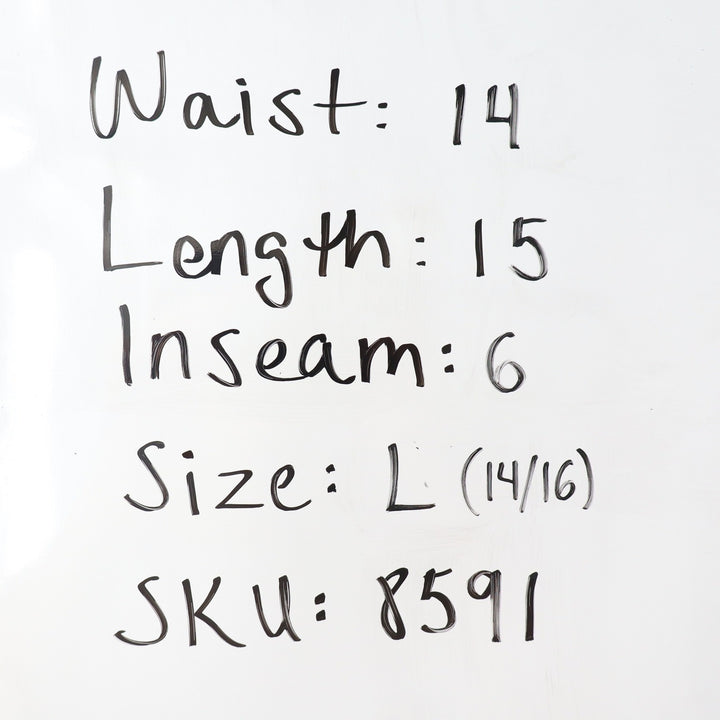 Waist: 14
Length: 15
Inseam: 6
Size: L (14/16)
SKU: 8591